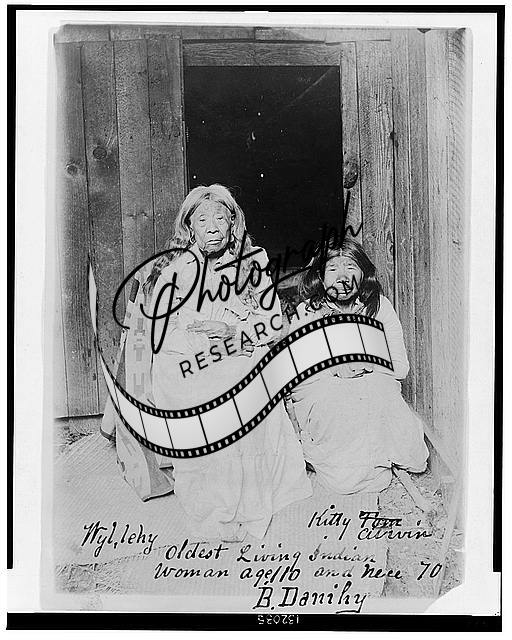 Photograph
RESEARCH.COM
Wyl,lehy
Kitty Tom
Oldest Living Indian
woman age 110 and neice 70
B. Danihy
132035